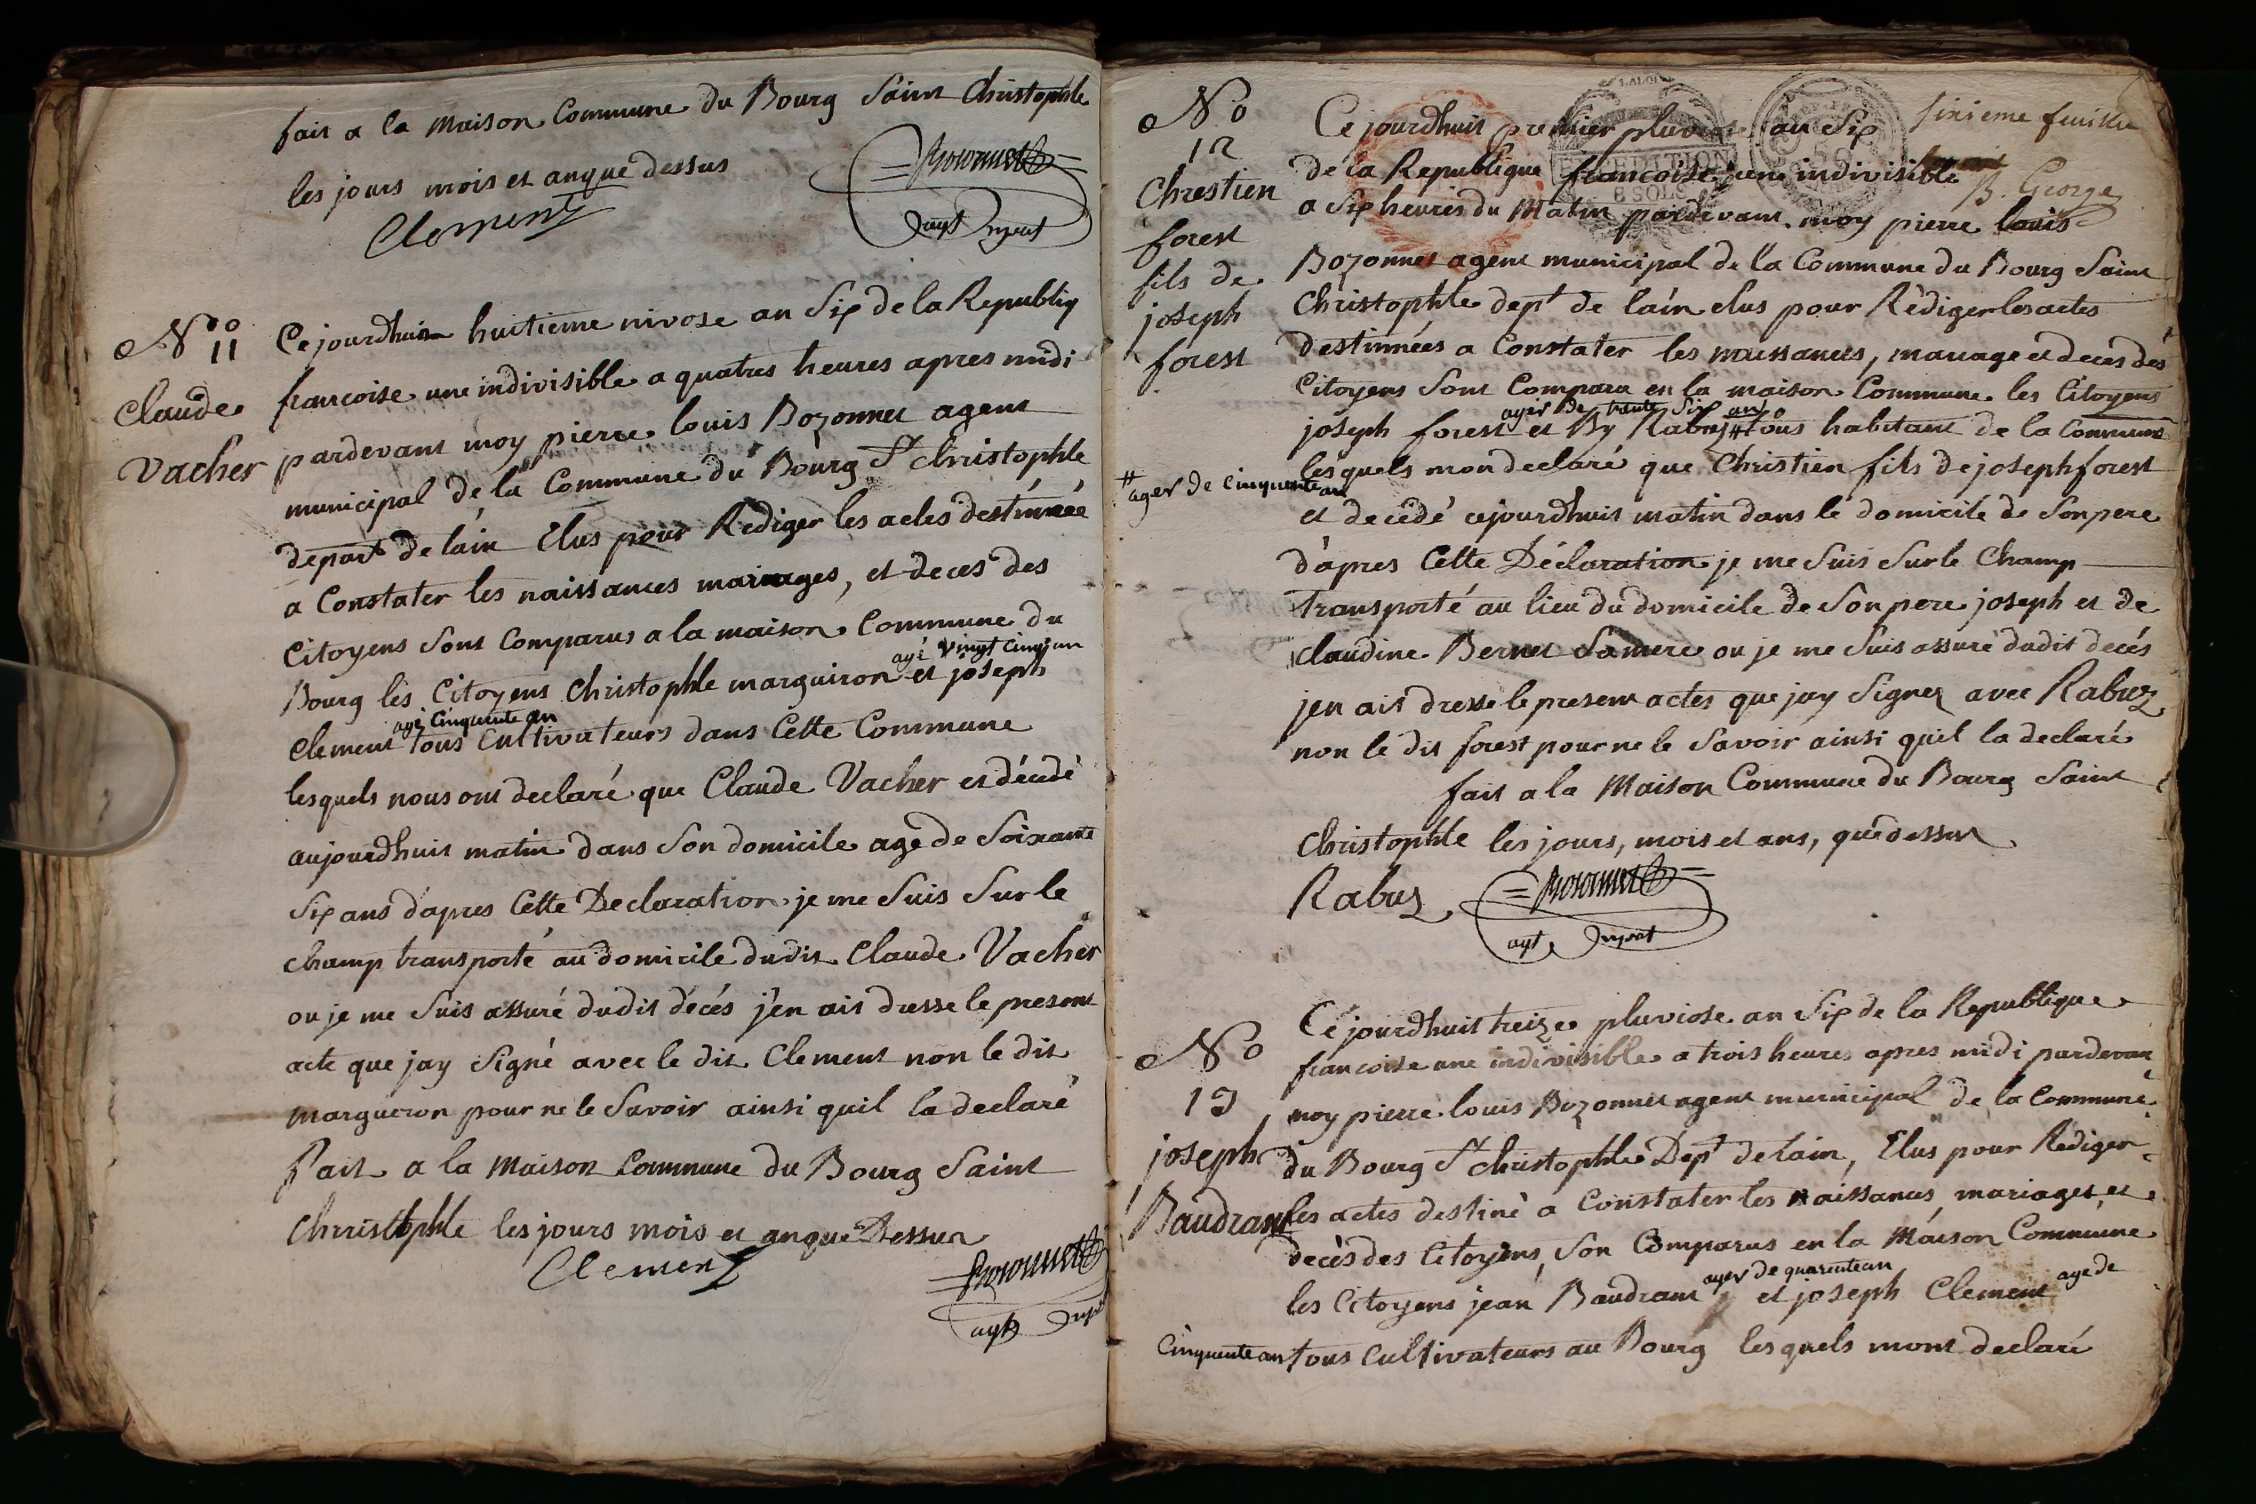 fait a la maison Commune du Bourg Saint Christophle
les jours mois et an que dessus
Clement
Bozonnet
agt
N° 11
Claude
Vacher
Cejourdhuit huitieme nivose an Six de la Republiq
francoise une indivisible a quatres heures apres midi
pardevant moy pierre louis Bozonnet agent
municipal de la Commune du Bourg St christophle
depart de lain Elus pour Rediger les actes destinnée
a Constater les naissances mariages, et deces des
Citoyens Sont Comparus a la maison Commune du
agé vingt cinq an
Bourg les Citoyens Christophle marguiron et joseph
agé Cinquante an
Clement tous Cultivateurs dans Cette Commune
lesquels nous ont declaré que Claude Vacher et décédé
aujourdhuit matin dans Son domicile age de Soixante
Six ans dapres Cette Declaration je me Suis Sur le
champ transporté au domicile dudit Claude Vacher
ou je me Suis assuré dudit décés j'en ait dresse le present
acte que jay Signé avec le dit Clement non le dit
margueron pour ne le Savoir ainsi quil la declaré
Fait a la maison Commune du Bourg Saint
Christophle les jours mois et an que Dessus
Clement
Bozonnet
agt
sixieme feuille
B. George
N°
12
Chrestien
forest
fils de
joseph
forest
Ce jourdhuit premier pluviose an Six
de la Republique francoise une indivisible
a Six heures du Matin pardevant moy pierre louis
Bozonnet agent municipal de la Commune du Bourg Saint
Christophle dept de lain elus pour Rèdiger les actes
destinnées a Constater les naissances, mariage et deces dés
Citoyens Sont Comparu en la maison Commune les Citoyens
ager de trente Six an
joseph forest et By Rabuz # tous habitant de la Commune
# ager de Cinquente an
lesquels mon declaré que Christien fils de joseph forest
et decédé cejourdhuit matin dans le domicile de Son pere
dàpres Cette Déclaration je me Suis Sur le Champ
transporté au lieu du domicile de Son pere joseph et de
claudine Bernet Samere ou je me Suis assuré dudit decés
jen ait dresse le present actes que jay Signez avec Rabuz
non le dit forest pour ne le Savoir ainsi quil la declaré
fait a la Maison Commune du Bourg Saint
Christophle les jours, mois et ans, que dessus
Rabuz
Bozonnet
agt
N°
13
joseph
Baudrant
Cé jourdhuit treize pluviose an Six de la Republique
francoise une indivisible a trois heures apres midi pardevan
moy pierre louis Bozonnet agent municipal de la Commune
du Bourg St christophle Dept de lain, Elus pour Rediger
les actes destiné a Constater les naissances, mariages et
decès des Citoyens, Son Comparus en la Maison Commune
ager de quarente an
les Citoyens jean Baudrant et joseph Clement age de
Cinquente an tous Cultivateurs au Bourg lesquels mont declaré